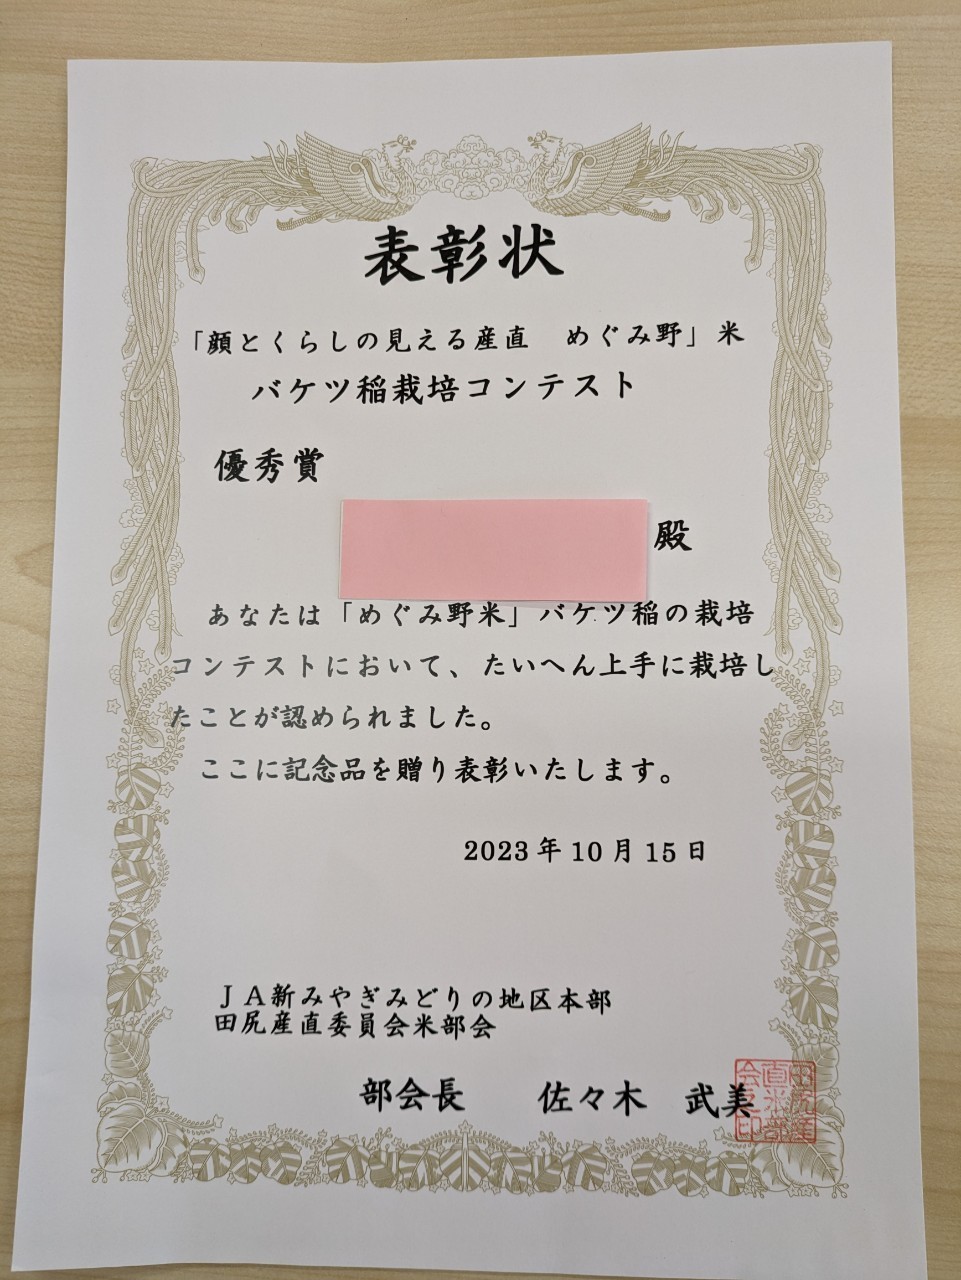 表彰状
「顔とくらしの見える産直　めぐみ野」米
バケツ稲栽培コンテスト
優秀賞
殿
あなたは「めぐみ野米」バケツ稲の栽培
コンテストにおいて、たいへん上手に栽培し
たことが認められました。
ここに記念品を贈り表彰いたします。
2023年10月15日
ＪＡ新みやぎみどりの地区本部
田尻産直委員会米部会
部会長　佐々木　武美